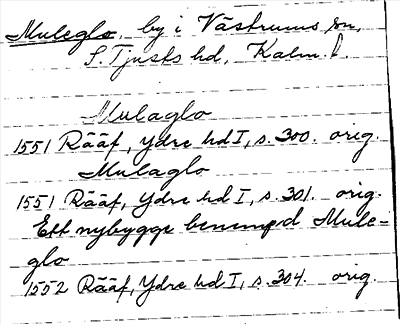 Muleglo, by i Västrums sn,
S. Tjusts hd, Kalm. l.
Mulaglo
1551 Rääf, Ydre hd I, s. 300. orig.
Mulaglo
1551 Rääf, Ydre hd I, s. 301. orig.
Ett nybygge benempd Mule-
glo
1552 Rääf, Ydre hd I, s. 304. orig.